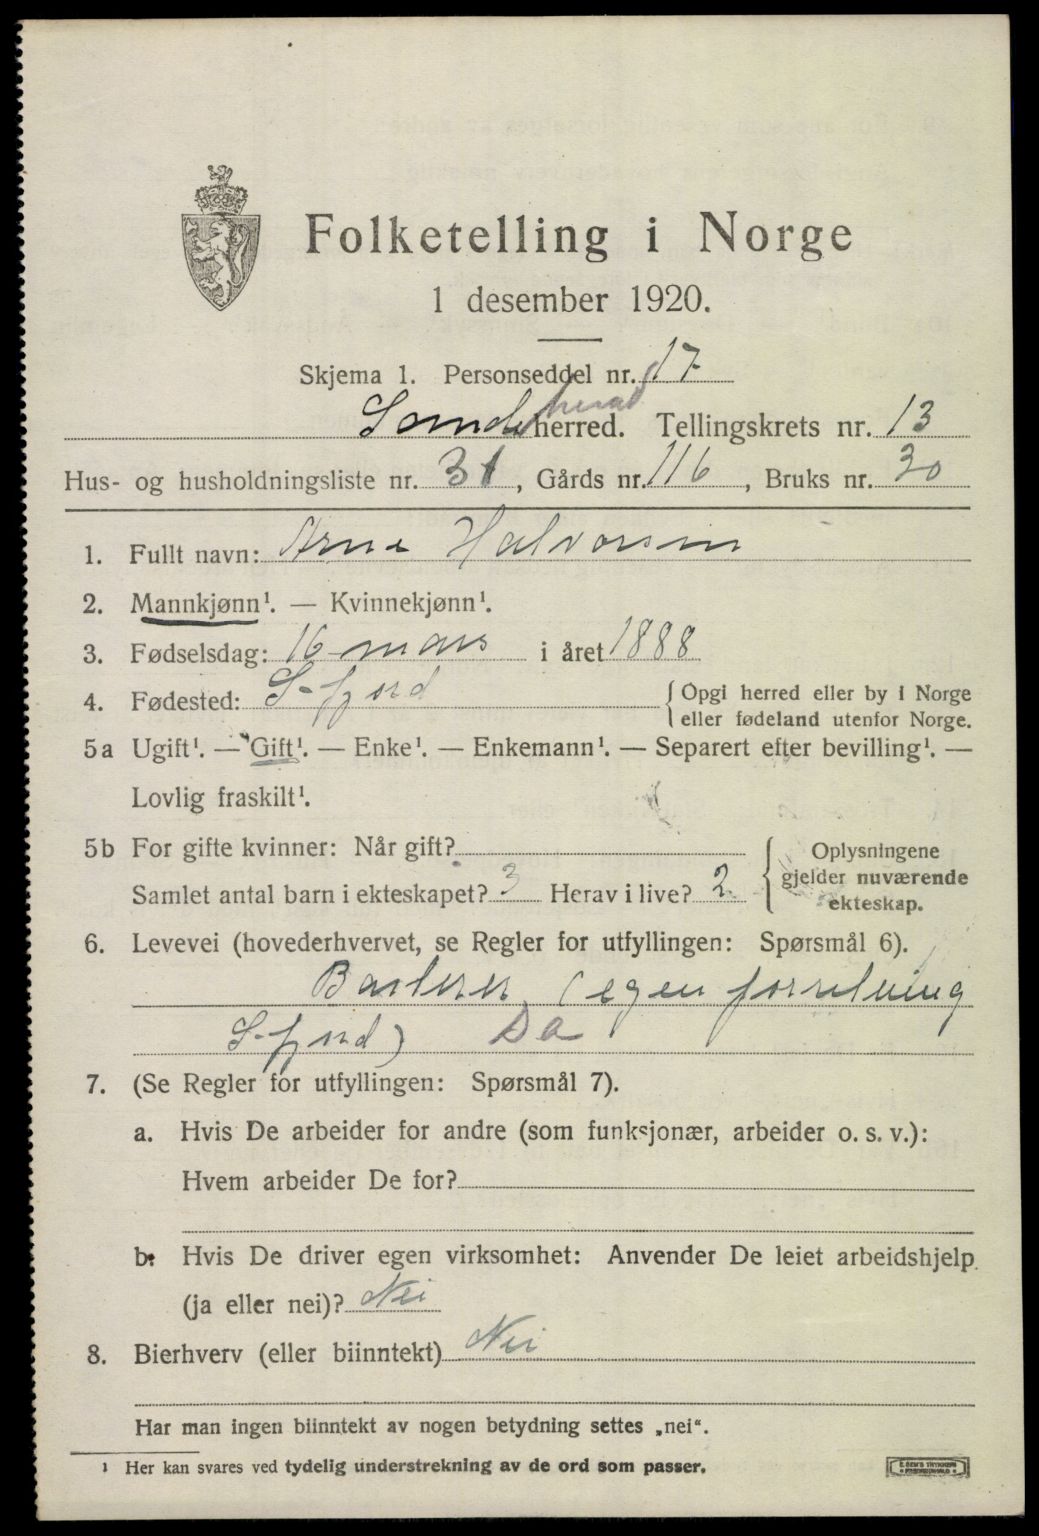 Folketelling i Norge
1 desember 1920.
Skjema 1. Personseddel nr. 17
Sandeherred. herad Tellingskrets nr. 13
Hus- og husholdningsliste nr. 31, Gårds nr. 116, Bruks nr. 30
1. Fullt navn: Arne Halvorsen
2. Mannkjønn¹. — Kvinnekjønn¹.
3. Fødselsdag: 16 mars i året 1888
4. Fødested: S-fjord {Opgi herred eller by i Norge
eller fødeland utenfor Norge.
5a Ugift¹. — Gift¹. — Enke¹. — Enkemann¹. — Separert efter bevilling¹. —
Lovlig fraskilt¹.
5b For gifte kvinner: Når gift?
Samlet antal barn i ekteskapet? 3 Herav i live? 2
{Oplysningene
gjelder nuværende
ekteskap.
6. Levevei (hovederhvervet, se Regler for utfyllingen: Spørsmål 6).
Barberer (egen forretning
S-fjord) Da
7. (Se Regler for utfyllingen: Spørsmål 7).
a. Hvis De arbeider for andre (som funksjonær, arbeider o. s. v.):
Hvem arbeider De for?
b. Hvis De driver egen virksomhet: Anvender De leiet arbeidshjelp
(ja eller nei)? Nei
8. Bierhverv (eller biinntekt) Nei
Har man ingen biinntekt av nogen betydning settes „nei“.
¹ Her kan svares ved tydelig understrekning av de ord som passer.